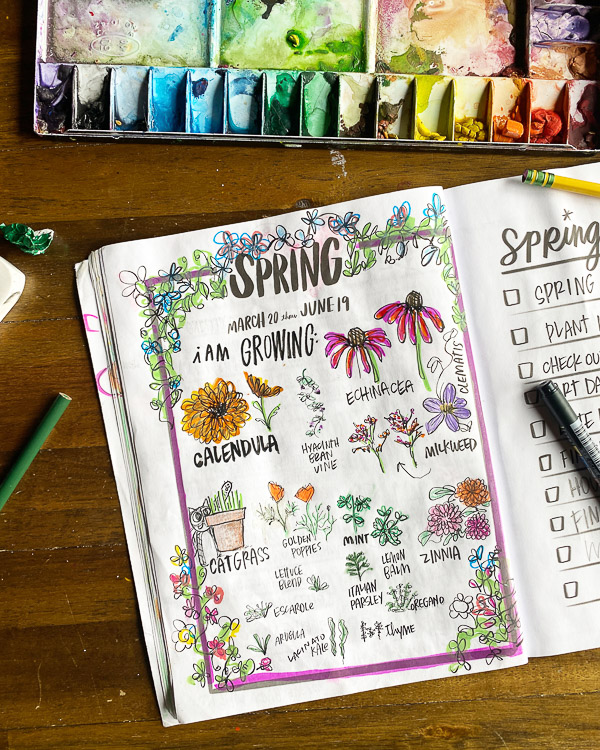 SPRING
MARCH 20 thru JUNE 19
i AM GROWING:
ECHINACEA
CLEMATIS
CALENDULA
HYACINTH
BEAN
VINE
MILKWEED
CATGRASS
GOLDEN
POPPIES
MINT
LEMON
BALM
ZINNIA
LETTUCE
BLEND
ITALIAN
PARSLEY
OREGANO
ESCAROLE
ARUGULA
LACINATO
KALE
THYME
SPRING
SPRING
PLANT
CHECK OU
ART DA
FIN